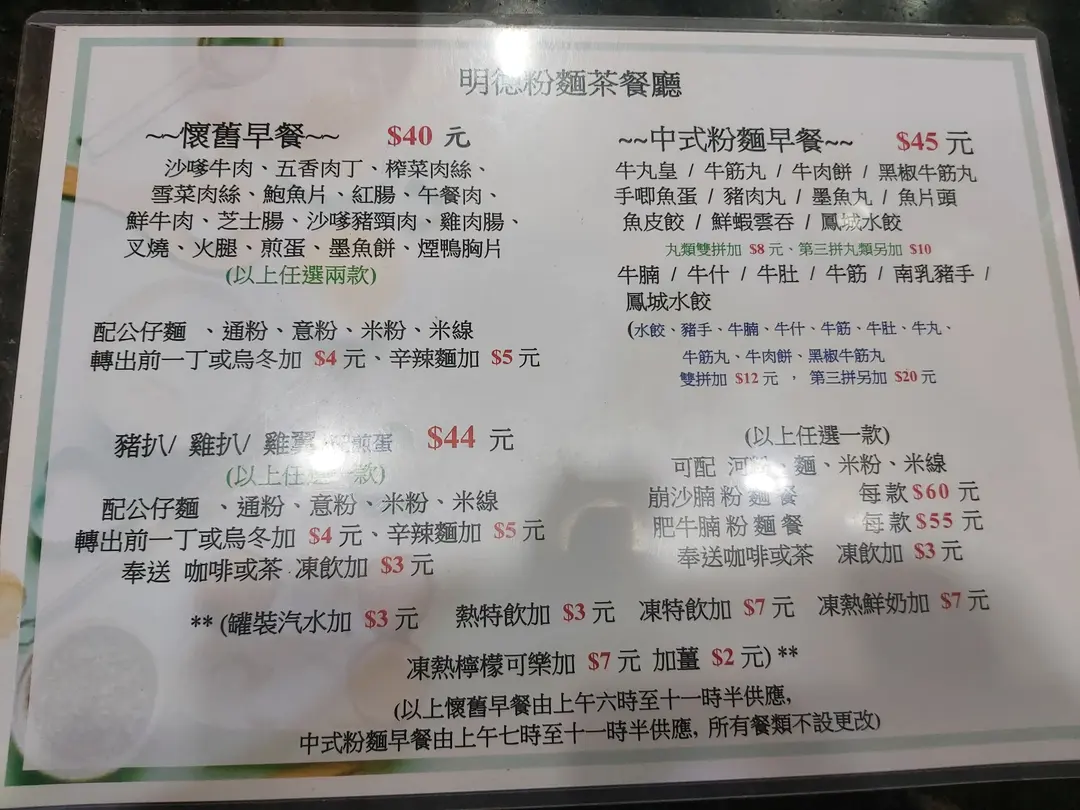 明德粉麵茶餐廳
~~懷舊早餐~~ $40 元
沙嗲牛肉、五香肉丁、榨菜肉絲、
雪菜肉絲、鮑魚片、紅腸、午餐肉、
鮮牛肉、芝士腸、沙嗲豬頸肉、雞肉腸、
叉燒、火腿、煎蛋、墨魚餅、煙鴨胸片
(以上任選兩款)
配公仔麵 、通粉、意粉、米粉、米線
轉出前一丁或烏冬加 $4 元、辛辣麵加 $5 元
豬扒/ 雞扒/ 雞翼 煎蛋 $44 元
(以上任選一款)
配公仔麵 、通粉、意粉、米粉、米線
轉出前一丁或烏冬加 $4 元、辛辣麵加 $5 元
奉送 咖啡或茶 凍飲加 $3 元
~~中式粉麵早餐~~ $45 元
牛丸皇 / 牛筋丸 / 牛肉餅 / 黑椒牛筋丸
手唧魚蛋 / 豬肉丸 / 墨魚丸 / 魚片頭
魚皮餃 / 鮮蝦雲吞 / 鳳城水餃
丸類雙拼加 $8 元、第三拼丸類另加 $10
牛腩 / 牛什 / 牛肚 / 牛筋 / 南乳豬手 /
鳳城水餃
(水餃、豬手、牛腩、牛什、牛筋、牛肚、牛丸、
牛筋丸、牛肉餅、黑椒牛筋丸
雙拼加 $12 元 ， 第三拼另加 $20 元
(以上任選一款)
可配 河粉、麵、米粉、米線
崩沙腩粉麵餐 每款 $60 元
肥牛腩粉麵餐 每款 $55 元
奉送咖啡或茶 凍飲加 $3 元
** (罐裝汽水加 $3 元 熱特飲加 $3 元 凍特飲加 $7 元 凍熱鮮奶加 $7 元
凍熱檸檬可樂加 $7 元 加薑 $2 元) **
(以上懷舊早餐由上午六時至十一時半供應,
中式粉麵早餐由上午七時至十一時半供應, 所有餐類不設更改)